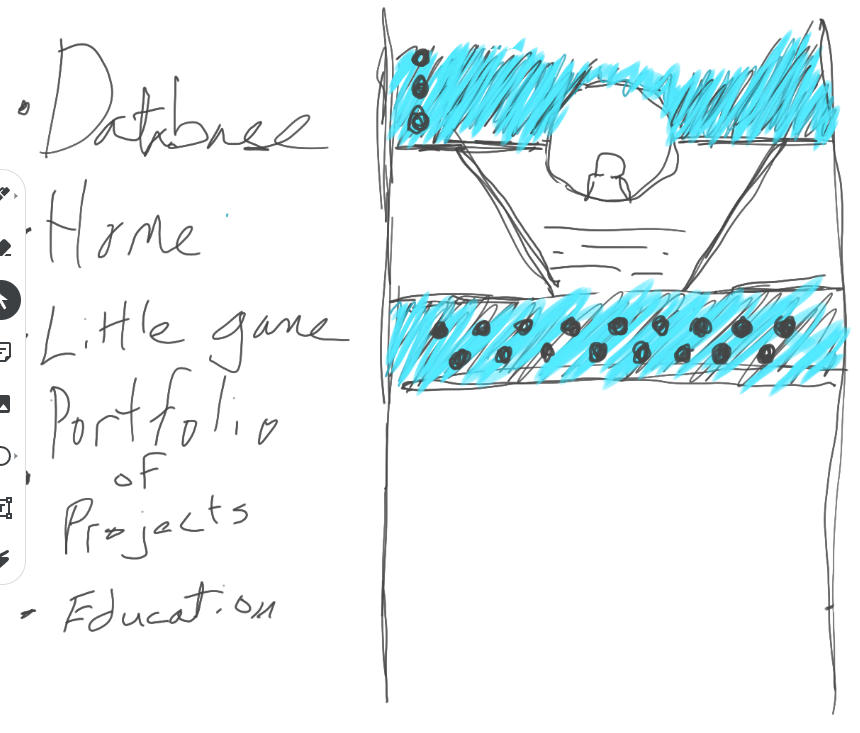 Database
Home
Little game
Portfolio
of
Projects
Education